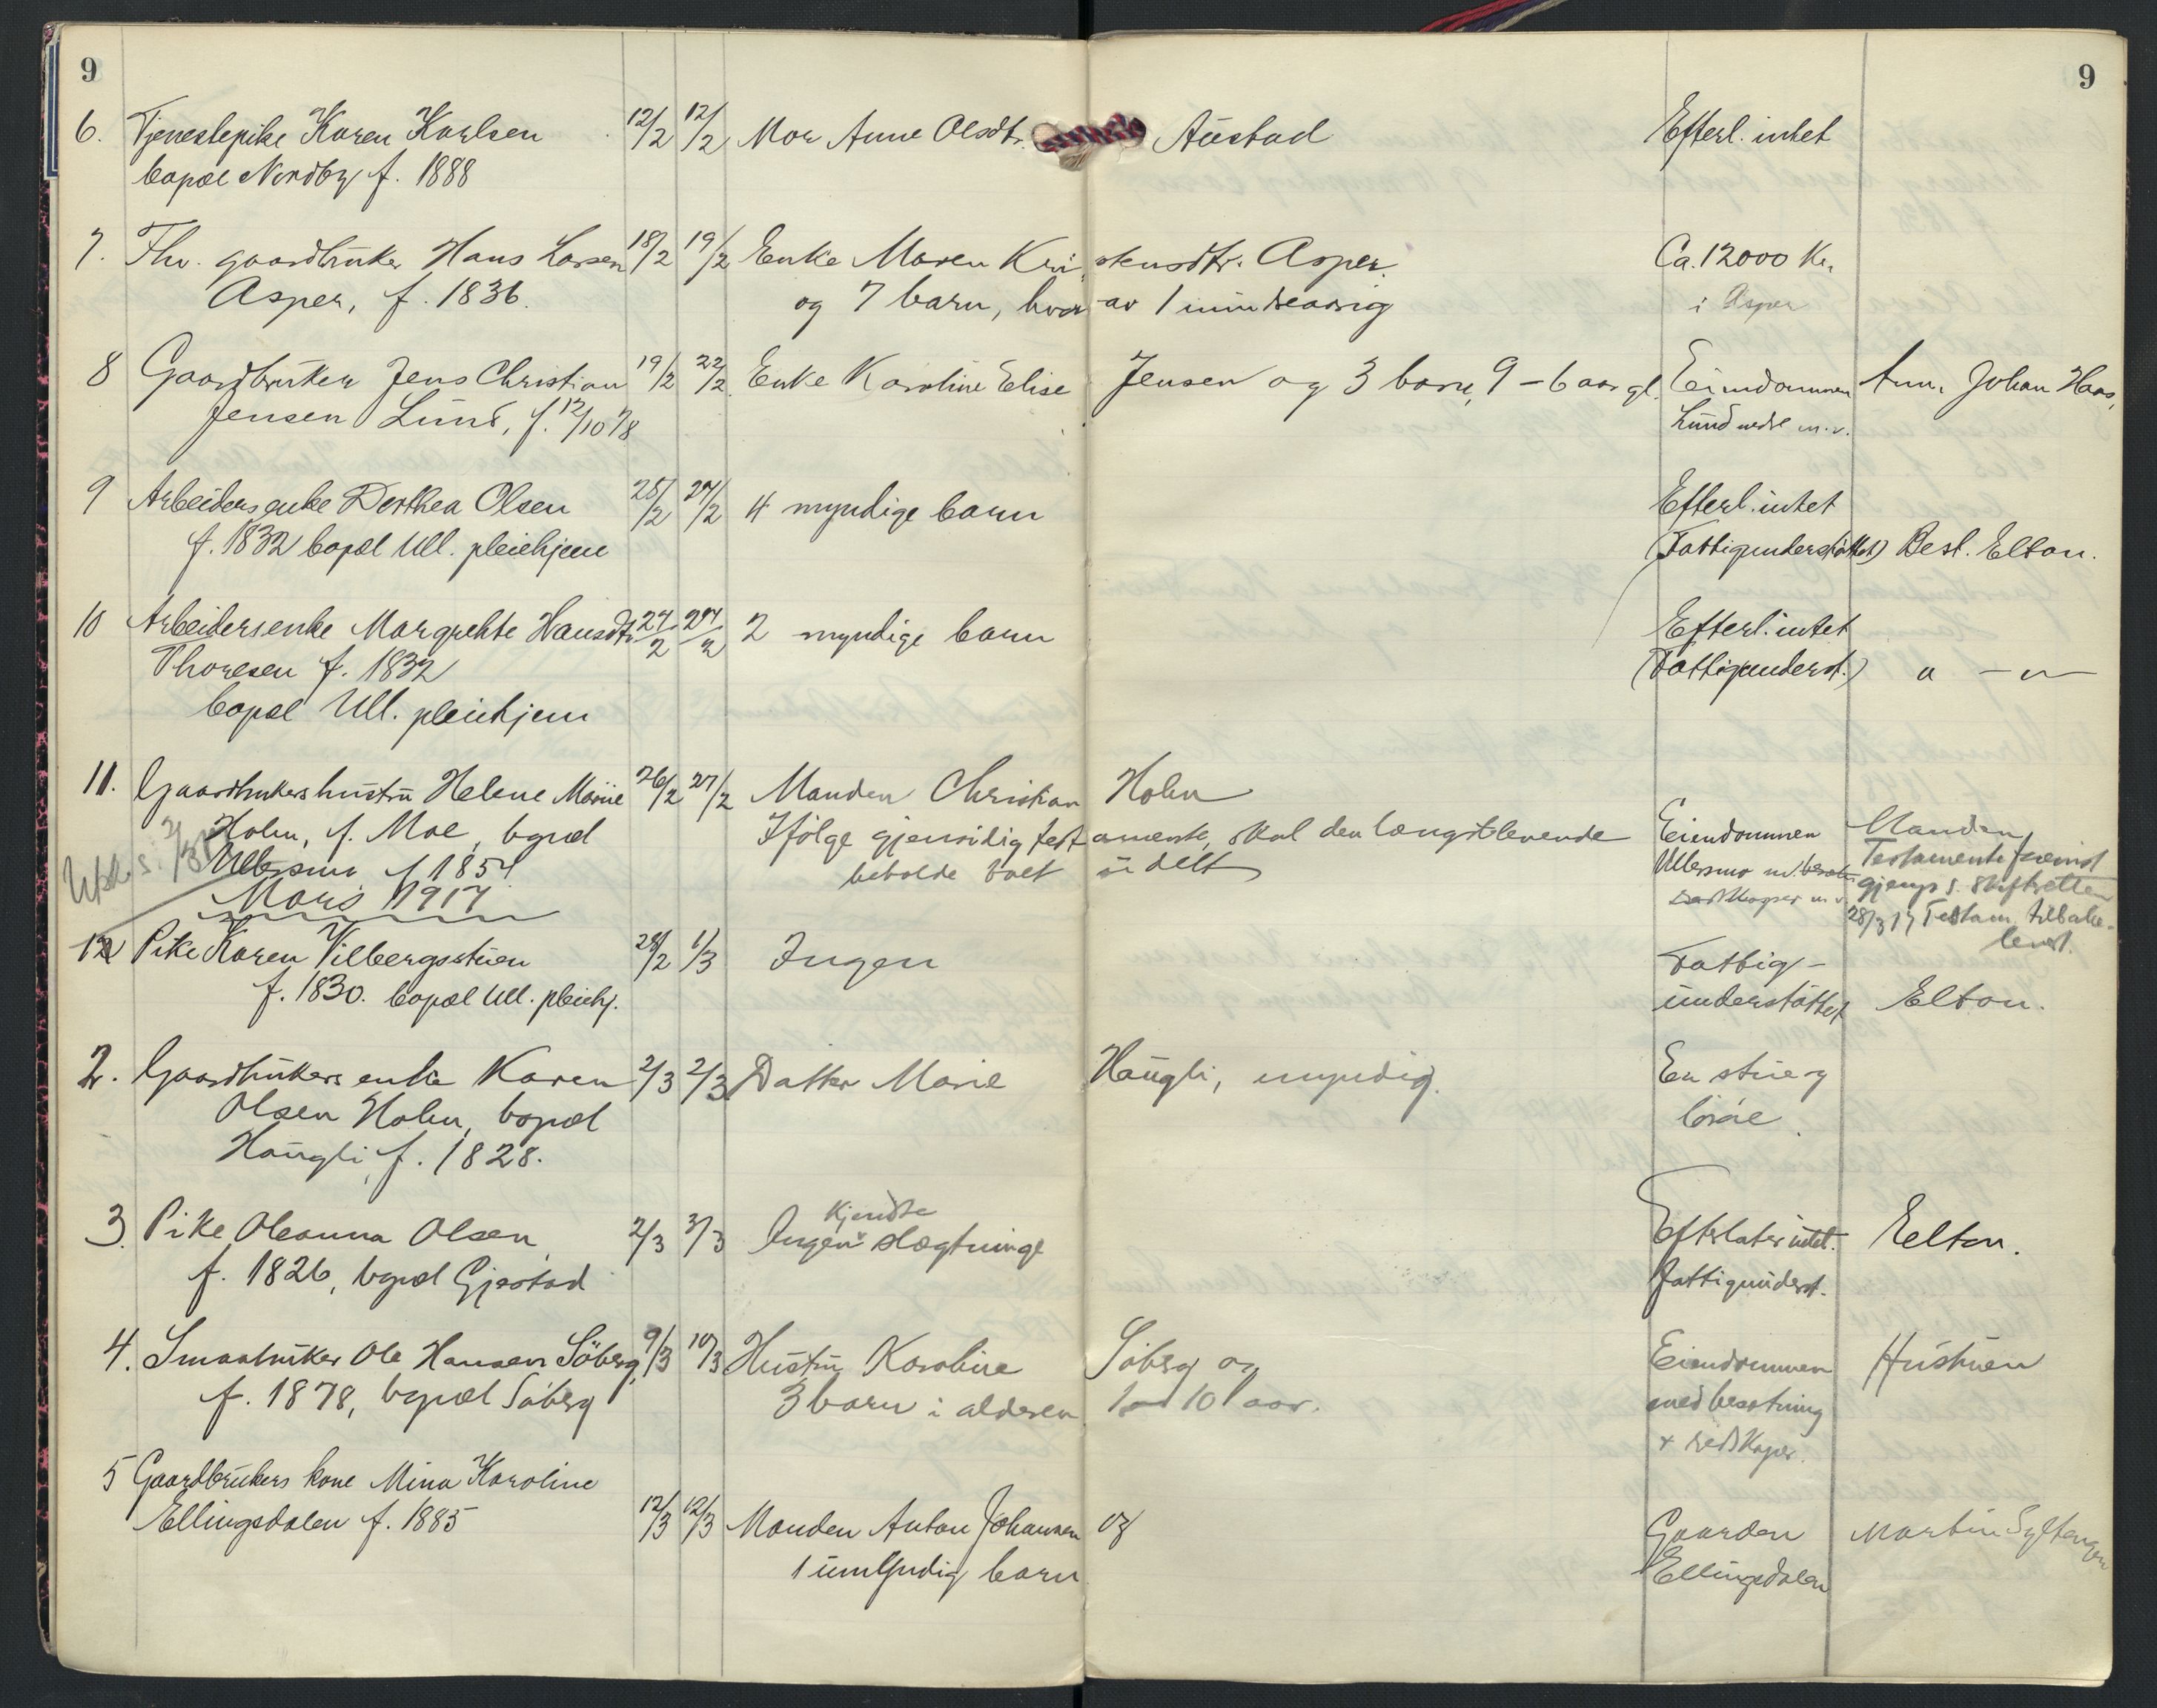 9 9
6. Tjenestepike Karen Karlsen 12/2 12/2 Mor Anne Olsdtr. Austad Efterl. intet
bopæl Nordby f. 1888
7. Fhv. gaardbruker Hans Larsen 18/2 19/2 Enke Maren Kristensdtr. Asper. Ca. 12000 Kr.
Asper, f. 1836. og 7 barn, hvorav 1 mindreaarig i Asper
8 Gaardbruker Jens Christian 19/2 22/2 Enke Karoline Elise Jensen og 3 barn, 9 – 6 aar gl. Eiendommen Anm. Johan Haas,
Jensen Lund, f. 12/10 78 Lund nedre m.v.
9 Arbeidersenke Dorthea Olsen 25/2 27/2 4 myndige barn Efterl. intet
f. 1832 bopæl Ull. pleiehjem (Fattigunderstøttet) Best. Elton.
10 Arbeidersenke Margrethe Hansdtr. 27/2 27/2 2 myndige barn Efterl. intet
Thoresen f. 1832 (Fattigunderst.) " — " —
bopæl Ull. pleiehjem
11. Gaardbrukers hustru Helene Marie 26/2 27/2 Manden Christian Holm
Holm, f. Moe, bopæl Ifölge gjensidig testamente, skal den længstlevende Eiendommen Manden
Ullersmo f 1854. beholde boet udelt Ullersmo m/besætn. Testamente
redskaper m.v. gjenp. s. skifteretten
Mars 1917 28/3 17 Testam. tilbake-
levert.
12 Pike Karen Vilbergsstuen 28/2 1/3 Ingen Fattig-
f. 1830. bopæl Ull. pleiehj. understöttet Elton.
2. Gaardbrukers enke Karen 2/3 2/3 Datter Marie Haugli, myndig. En stue og
Olsen Holm, bopæl lösöre.
Haugli, f. 1828.
kjendte
3. Pike Oleanna Olsen 2/3 3/3 Ingen slægtninge Efterlater intet. Elton.
f. 1826, bopæl Gjestad Fattigunderst.
4. Smaabruker Ole Hansen Söberg, 9/3 10/3 Hustru Karoline Söberg og Eiendommen Hustruen
f. 1878, bopæl Söberg 3 barn i alderen 1 – 10 aar. med besætning
+ redskaper.
5 Gaardbrukers kone Mina Karoline
Ellingsdalen f. 1885 12/3 12/3 Manden Anton Johansen og Gaarden Martin
1 umyndig barn Ellingsdalen